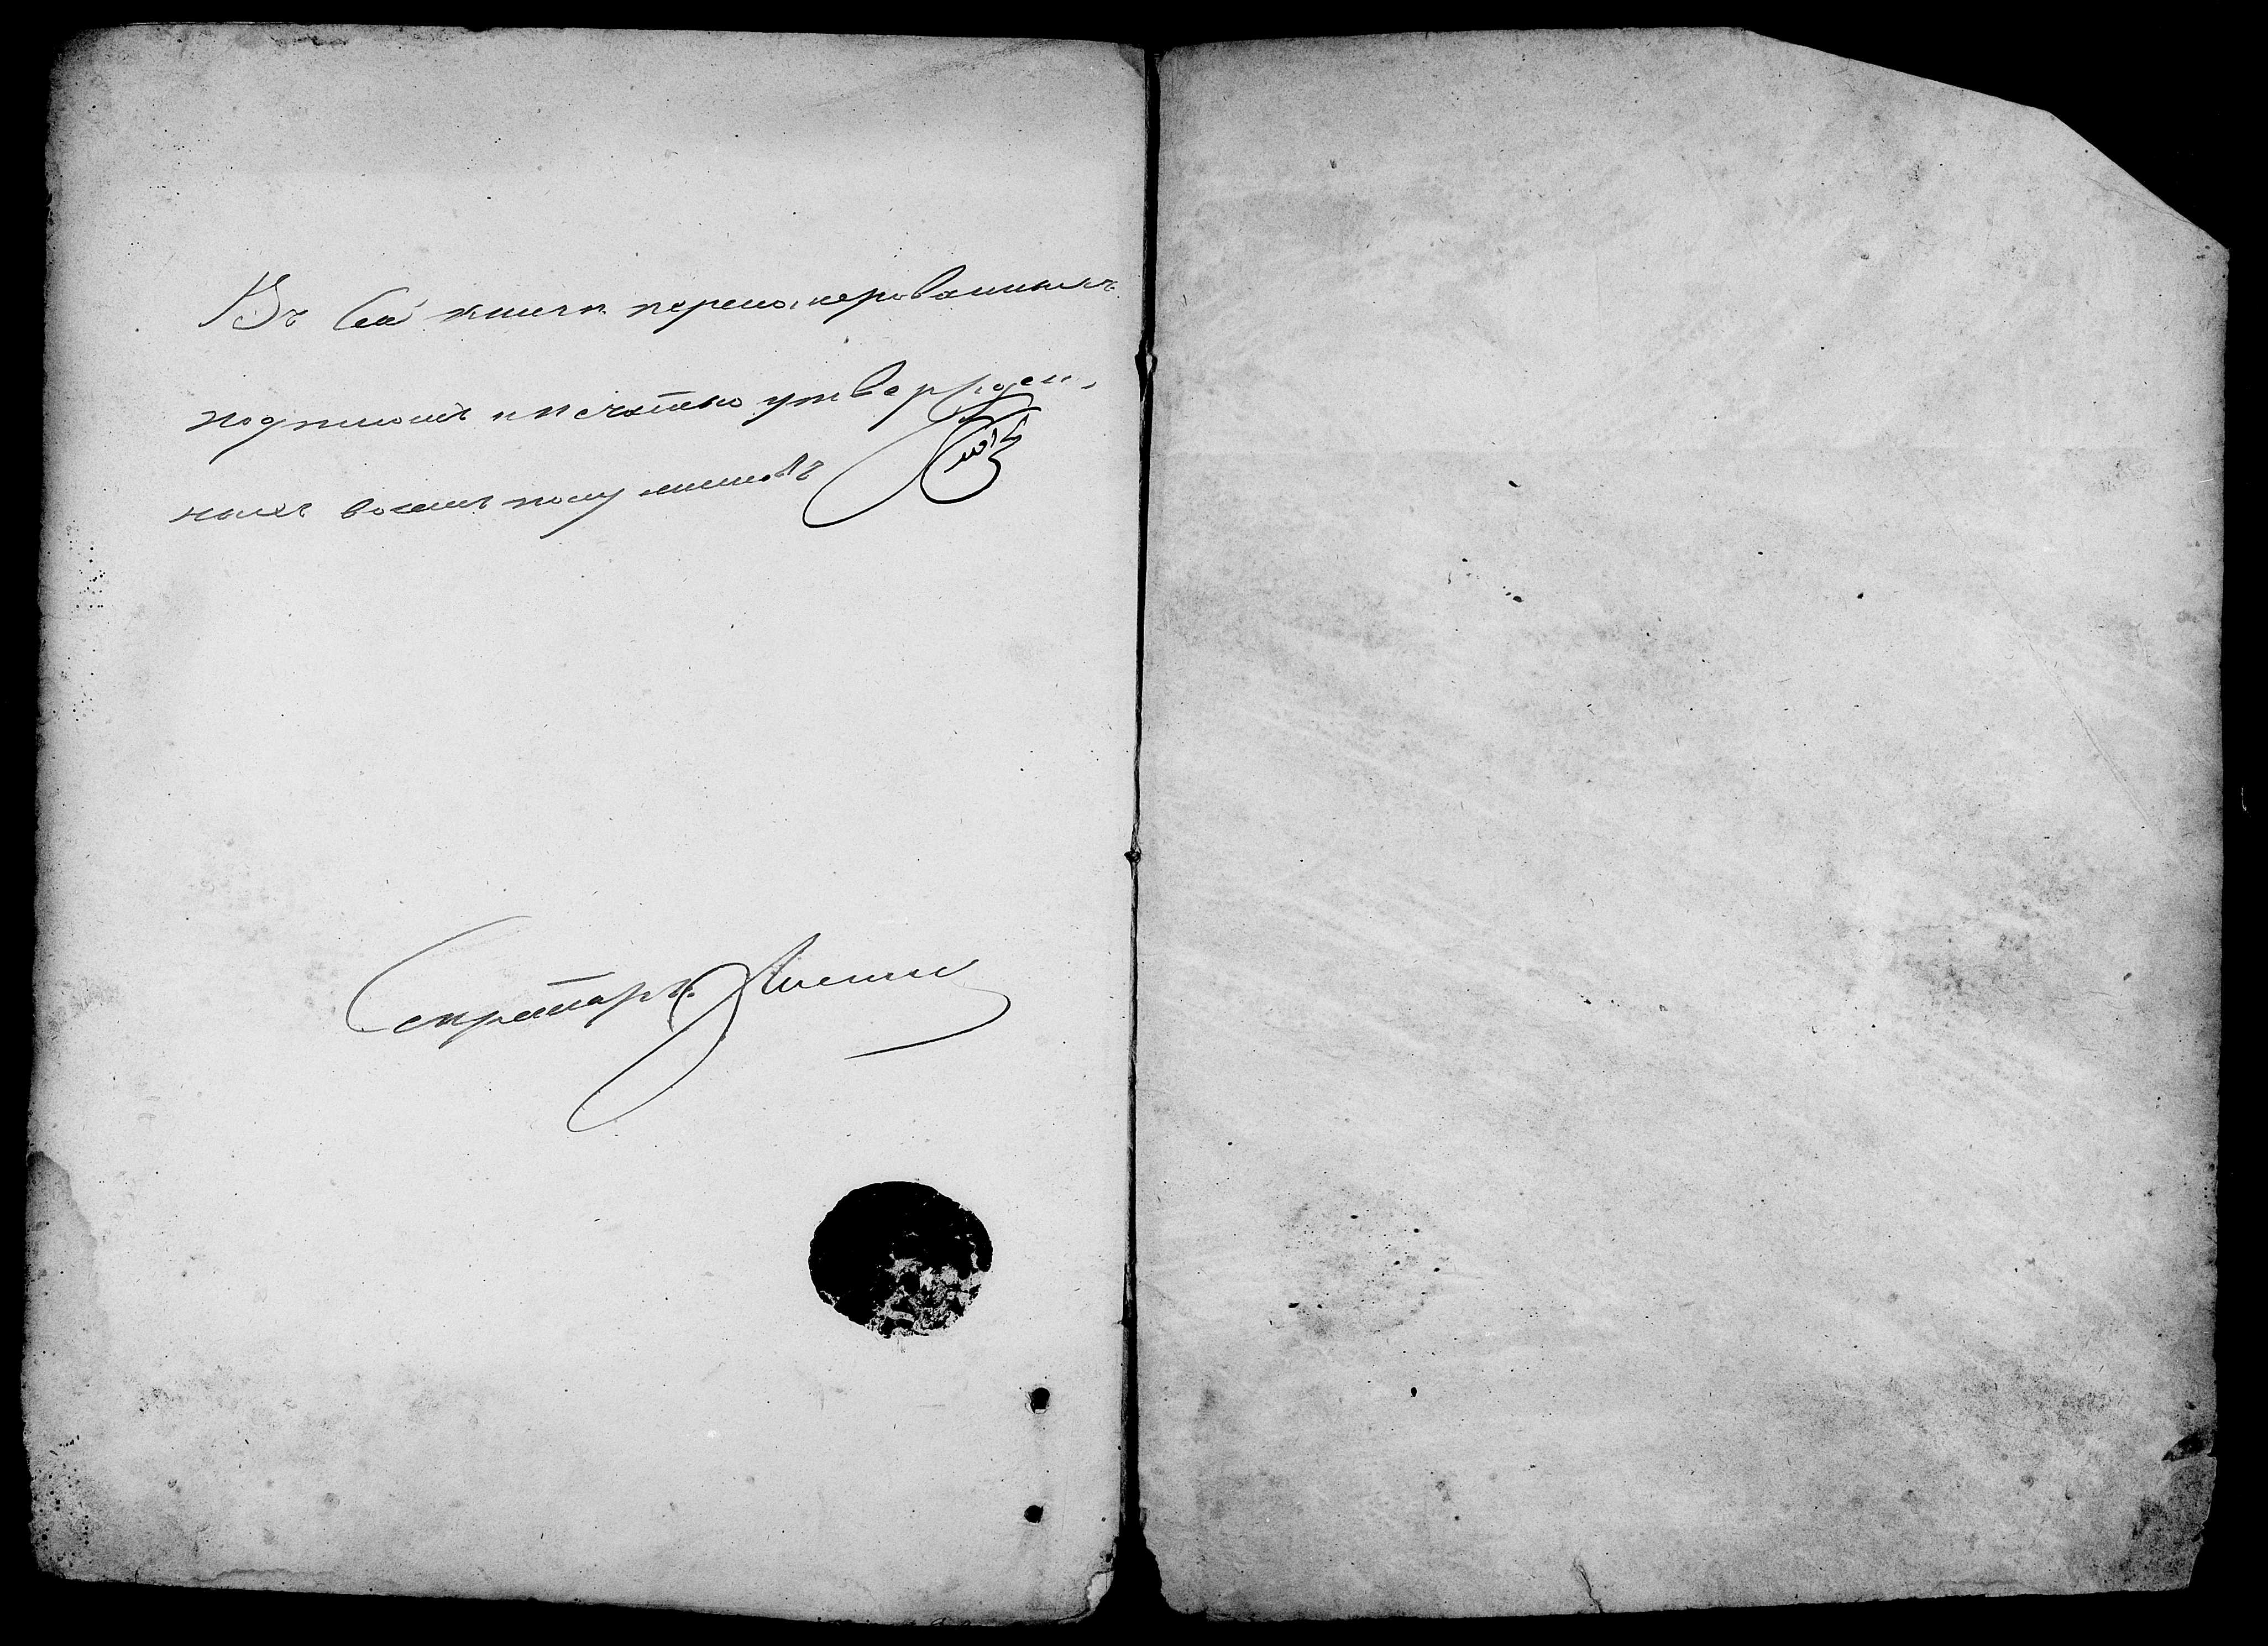 Въ сей книгѣ перенумерованныхъ
подписомъ и печатью утвержден-
ныхъ восемь полулистовъ
Секретарь